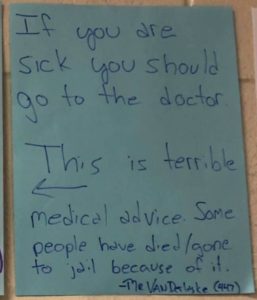 If you are
sick you should
go to the doctor.
This is terrible
←
medical advice. Some
people have died/gone
to jail because of it.